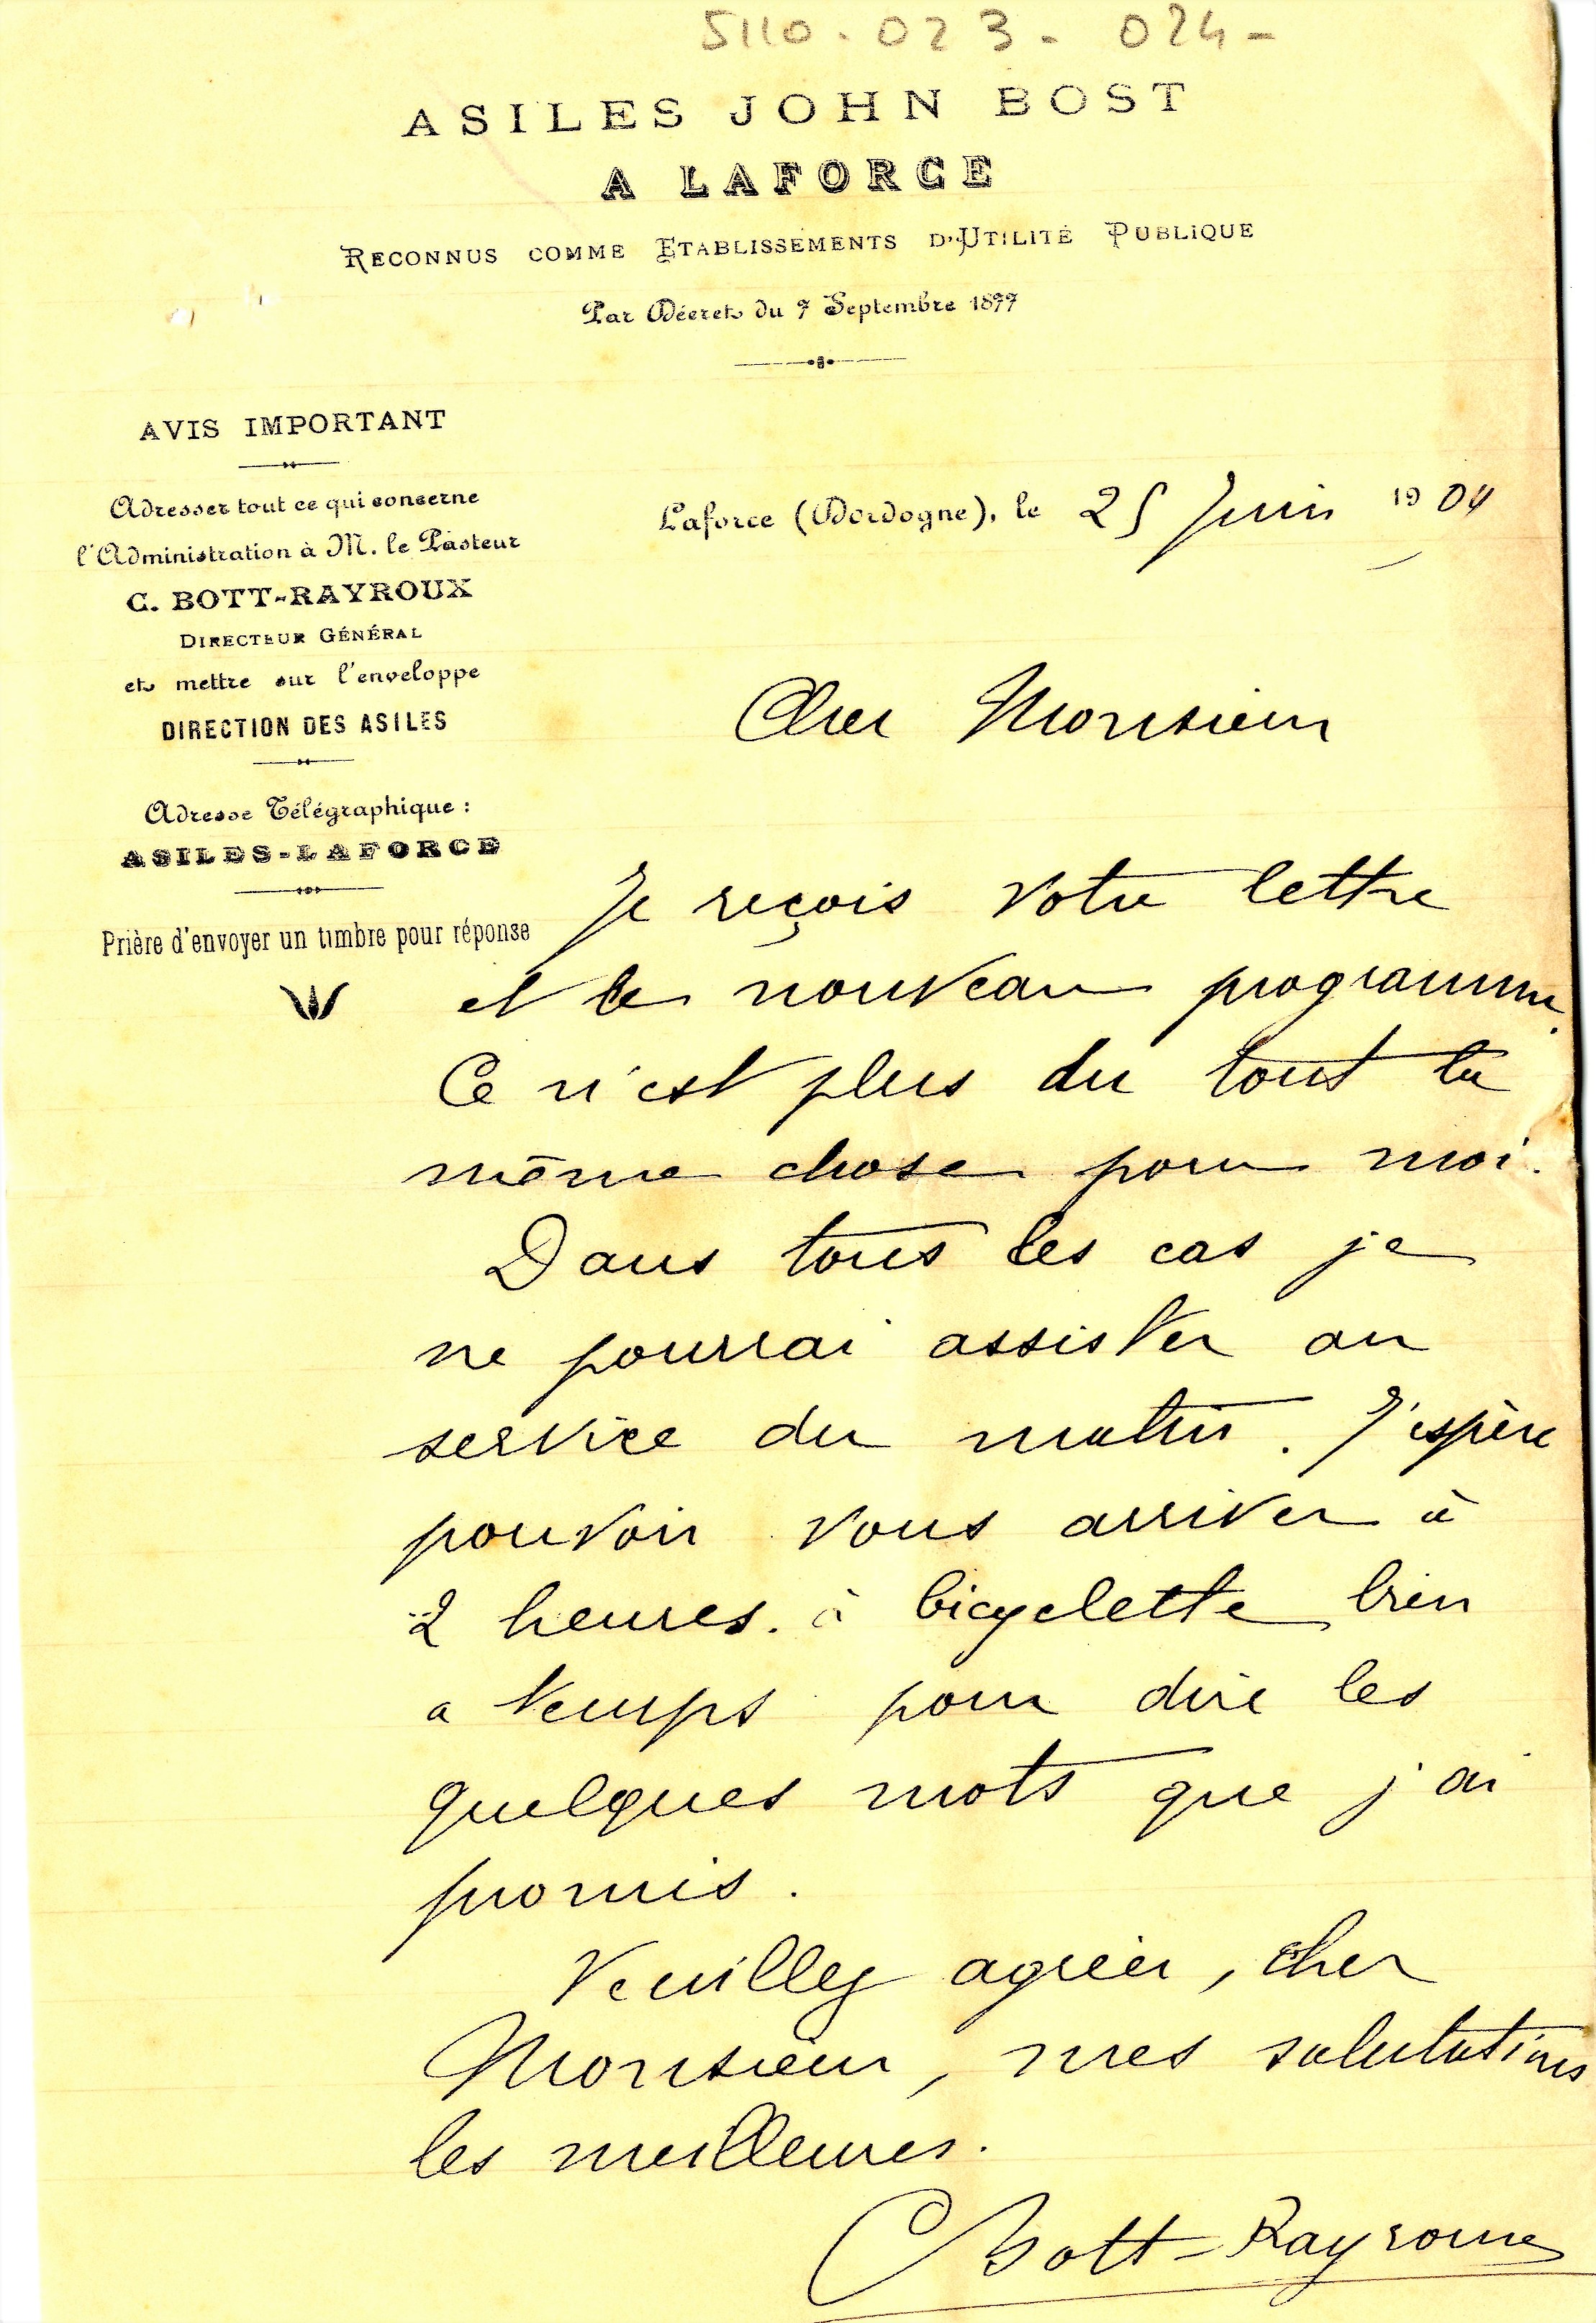 5110.023-024-
ASILES JOHN BOST
A LAFORCE
RECONNUS COMME ETABLISSEMENTS D'UTILITÉ PUBLIQUE
Par Décret du 7 Septembre 1877
AVIS IMPORTANT
Adresser tout ce qui concerne
l'Administration à M. le Pasteur
C. BOTT-RAYROUX
DIRECTEUR GÉNÉRAL
et mettre sur l'enveloppe
DIRECTION DES ASILES
Adresse Télégraphique :
ASILES-LAFORCE
Prière d'envoyer un timbre pour réponse
Laforce (Dordogne), le 25 Juin 1904
Cher Monsieur
Je reçois votre lettre
et le nouveau programme.
Ce n'est plus du tout la
même chose pour moi.
Dans tous les cas je
ne pourrai assister au
service du matin. J'espère
pouvoir vous arriver à
2 heures. à bicyclette bien
a temps pour dire les
quelques mots que j'ai
promis.
Veuillez agréer, cher
Monsieur, mes salutations
les meilleures.
C Bott-Rayroux